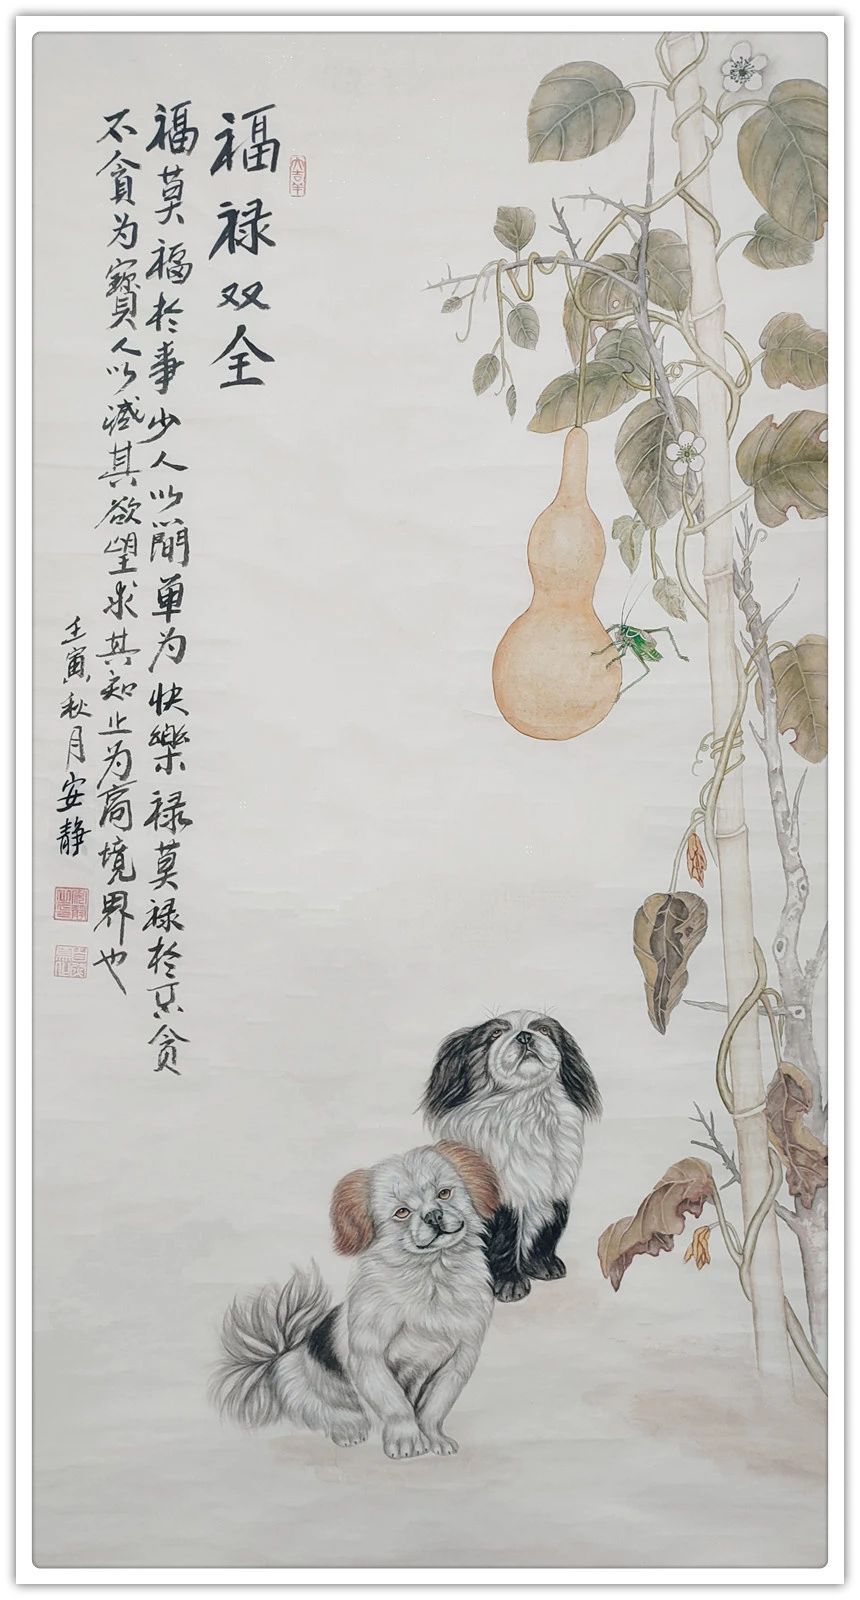 福禄双全
福莫福於事少人以简单为快樂禄莫禄於不贪
不貪为寶人以减其欲望求其知止为高境界也
壬寅秋月安静
大吉羊